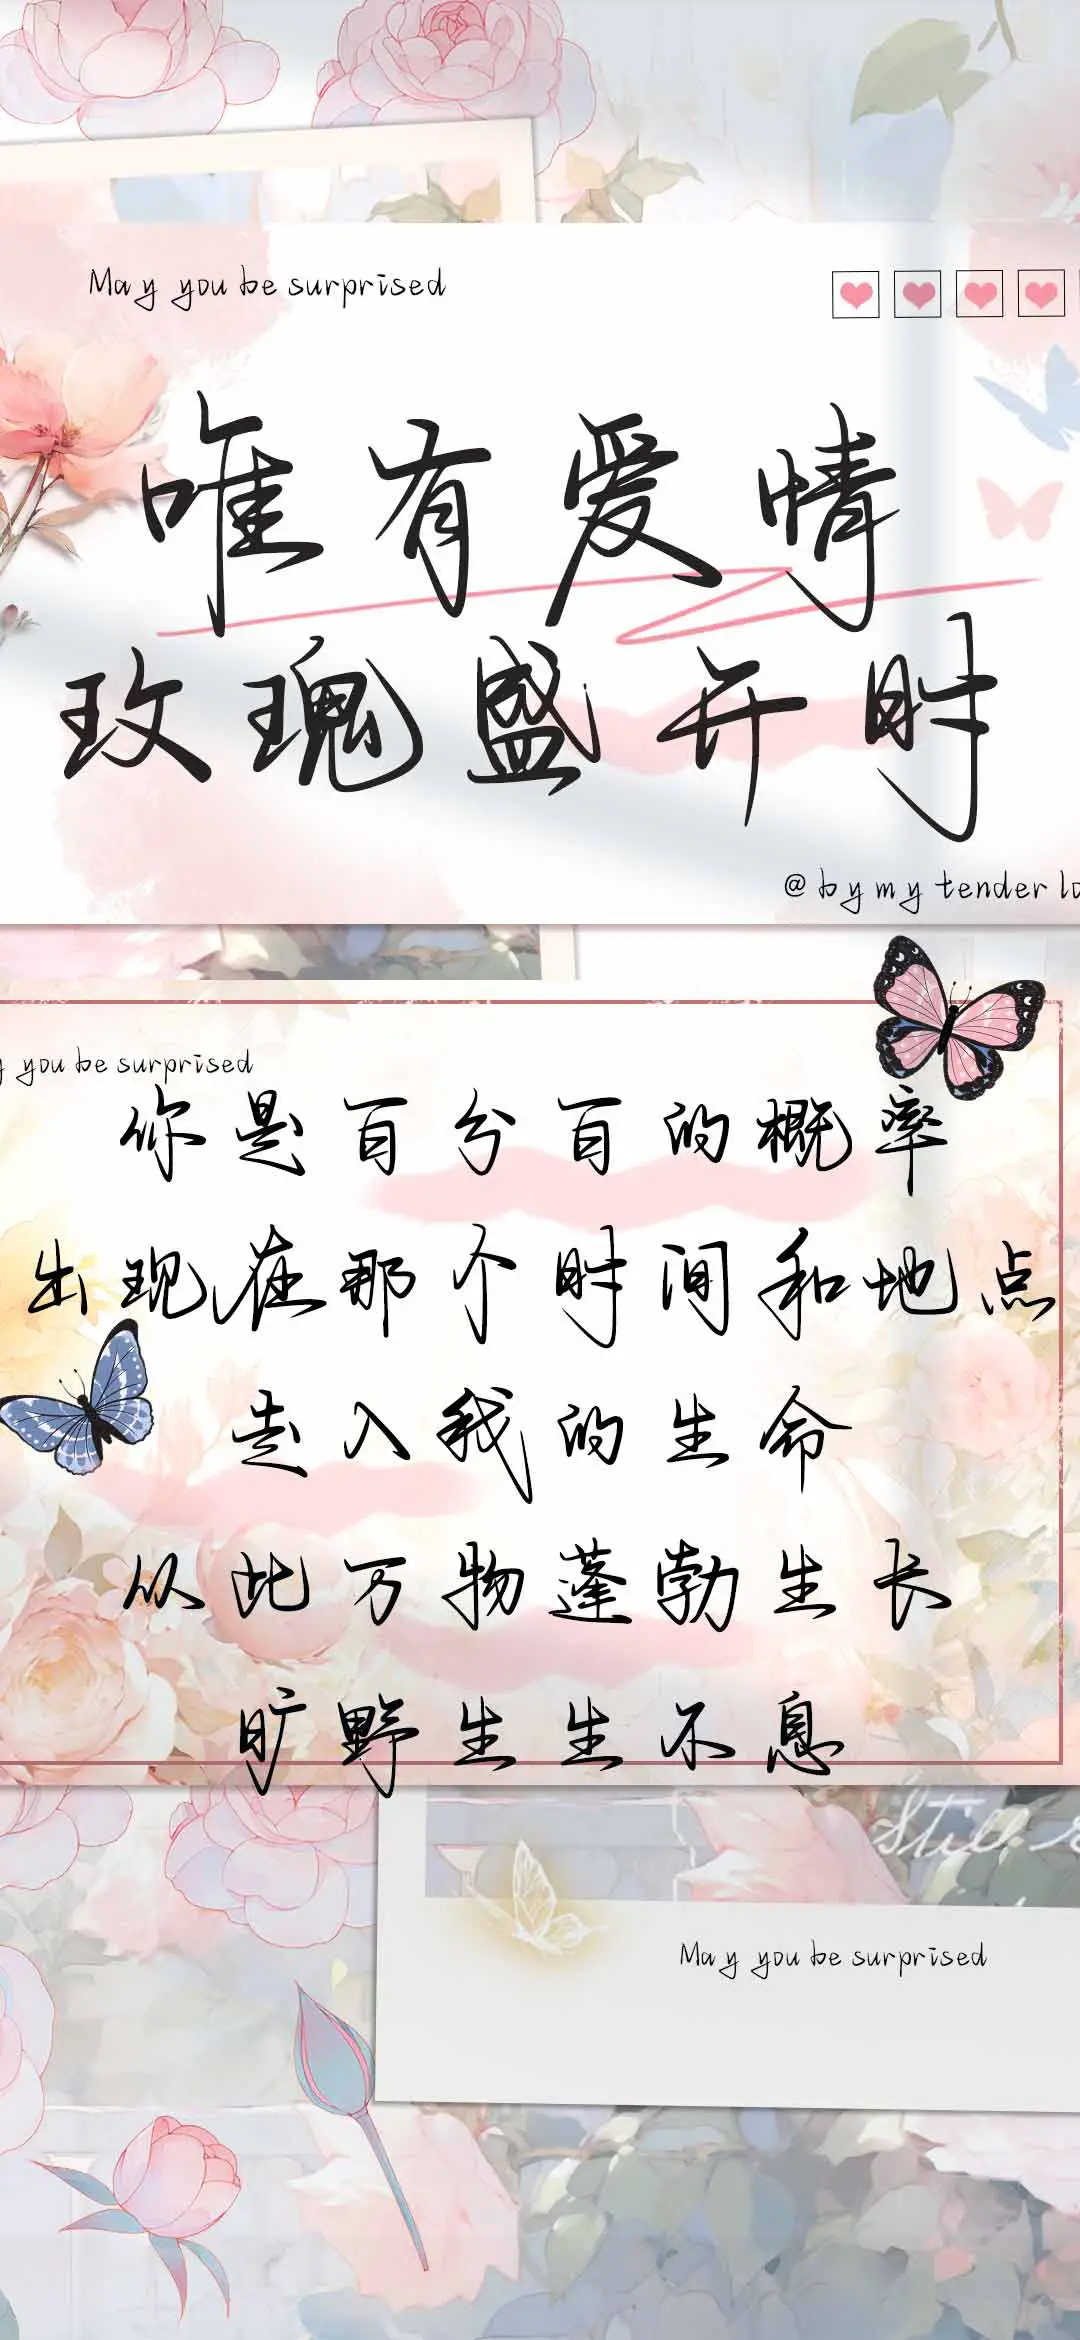 May you be surprised
唯有爱情
玫瑰盛开时
@by my tender
you be surprised
你是百分百的概率
出现在那个时间和地点
走入我的生命
从此万物蓬勃生长
旷野生生不息
Still
May you be surprised